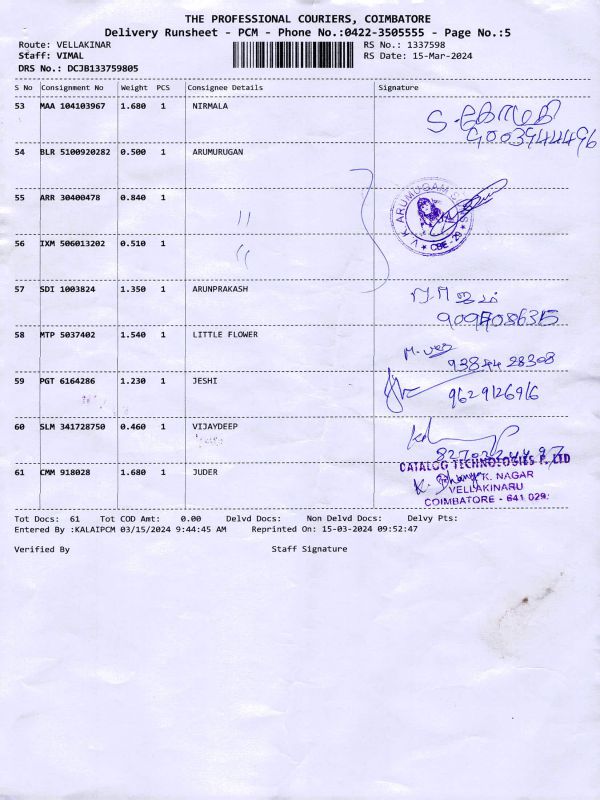 THE PROFESSIONAL COURIERS, COIMBATORE
Delivery Runsheet - PCM - Phone No.:0422-3505555 - Page No.:5
Route: VELLAKINAR RS No.: 1337598
Staff: VIMAL RS Date: 15-Mar-2024
DRS No.: DCJB133759805
S No Consignment No Weight PCS Consignee Details Signature
53 MAA 104103967 1.680 1 NIRMALA
9003944496
54 BLR 5100920282 0.500 1 ARUMURUGAN
V.K ARUMUGAM
55 ARR 30400478 0.840 1 "
CBE-29
56 IXM 506013202 0.510 1 "
57 SDI 1003824 1.350 1 ARUNPRAKASH
58 MTP 5037402 1.540 1 LITTLE FLOWER
9384428308
59 PGT 6164286 1.230 1 JESHI
9629126916
60 SLM 341728750 0.460 1 VIJAYDEEP
CATALOG TECHNOLOGIES P. LTD
61 CMM 918028 1.680 1 JUDER
K. NAGAR
VELLAKINARU
COIMBATORE - 641 029.
Tot Docs: 61 Tot COD Amt: 0.00 Delvd Docs: Non Delvd Docs: Delvy Pts:
Entered By :KALAIPCM 03/15/2024 9:44:45 AM Reprinted On: 15-03-2024 09:52:47
Verified By Staff Signature